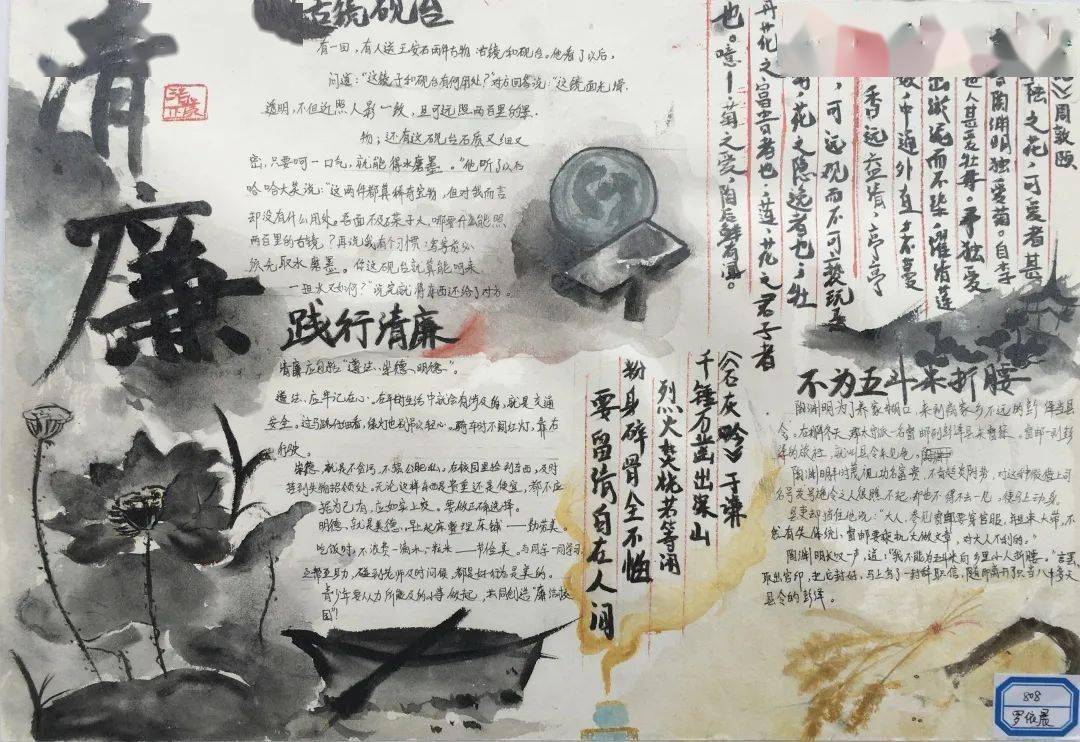 清廉
清廉
古镜砚台
有一回，有人送王安石两件古物 古镜和砚台。他看了以后，
问道："这镜子和砚台有何用处？"对方回答说："这镜面光滑
透明，不但近照人影一致，且可远照两百里的景
物；还有这砚台石质又细又
密，只要呵一口气，就能得水磨墨。"他听了以后
哈哈大笑说："这两件都真稀有宝物，但对我而言
却没有什么用处。
两百里的古镜？再说我有个习惯
你这砚台就算能呵来
一担水又如何？"说完就将东西还给了对方。
践行清廉
清廉应自始"遵法、崇德、明德"。
遵法，应牢记在心。在平时生活中就会有涉及的，就是交通
安全。过马路仔细看，绿灯也别掉以轻心。骑车时不闯红灯，靠右
行驶。
崇德，就是不贪污，不损公肥私，在校园里捡到东西，及时
送到失物招领处。无论这样东西是贵重还是便宜，都不应
据为己有，应如实上交，要做正确选择。
明德，就是美德，早起床整理床铺——勤劳美。
吃饭时，不浪费一滴水一粒米——节俭美。与同学一同学习，
互帮互助，碰到老师及时问候，都是好的德是美的。
青少年要从力所能及的小事做起，共同创造"廉洁校
园"！
》周敦颐
之花，可爱者甚
陶渊明独爱菊。自李
世人甚爱牡丹。予独爱
出淤泥而不染，濯清涟
中通外直，不蔓
香远益清，亭亭
，可远观而不可亵玩焉
菊，花之隐逸者也；牡
丹，花之富贵者也；莲，花之君子者
也。噫！菊之爱，陶后鲜有闻。
《石灰吟》于谦
千锤万凿出深山
烈火焚烧若等闲
粉身碎骨全不怕
要留清白在人间
不为五斗米折腰
陶渊明为了养家糊口，来到离家乡不远的彭泽当县
令。在那年冬天，郡太守派一名督邮到彭泽县来督察。督邮一到彭
泽的旅社，就叫县令来见他。
陶渊明平时蔑视功名富贵，不肯趋炎附势，对这种假借上司
名号发号施令之人很瞧不起，却也不得不去一见，便马上动身。
县吏却拦住他说："大人，参见督邮要穿官服，并且束大带，不
然有失体统，督邮要乘机大做文章，对大人不利的。"
陶渊明长叹一声，道："我不能为五斗米向乡里小人折腰。"言罢，
取出官印，把它封好，马上写了一封辞职信，随即离开只当八十多天
县令的彭泽。
808
罗依晨